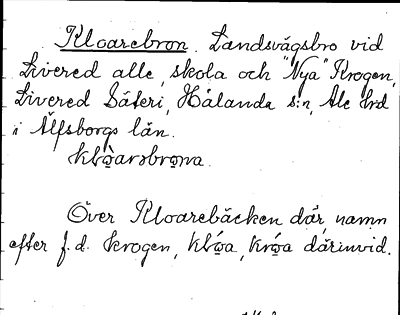 Kloarebron. Landsvägsbro vid
Livered alle, skola och "Nya" Krogen,
Livered Säteri, Hålanda s:n, Ale hrd
i Älfsborgs län.
klωarsbrωna.
Över Kloarebäcken där, namn
efter f.d. krogen, klωa, krωa därinvid.